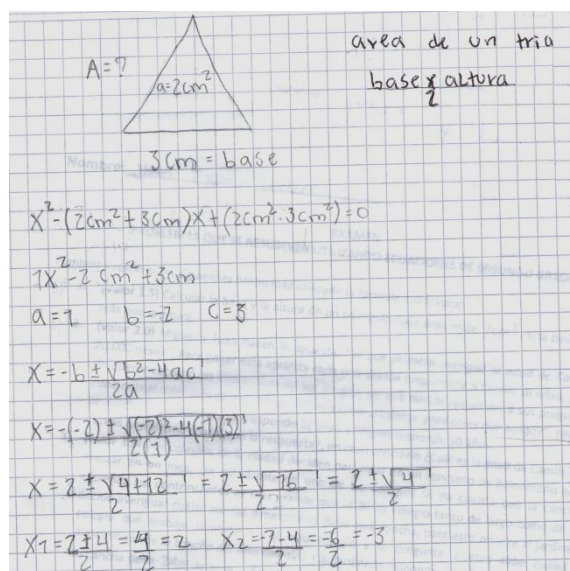 area de un tria
A=?
base x altura
2
a=2cm²
3cm = base
x²-(2cm²+3cm)x+(2cm²·3cm²)=0
1x²-2cm²+3cm
a=1 b=-2 c=3
x=-b±√b²-4ac
2a
x=-(-2)±√(-2)²-4(-1)(3)
2(1)
x=2±√4+12 = 2±√16 = 2±√4
2 2 2
x1=2±4=4=2 x2=-2-4=-6=-3
2 2 2 2